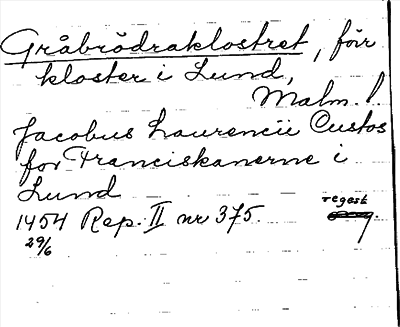 Gråbrödraklostret, förr
kloster i Lund,
Malm. l.
Jacobus Laurencii Custos
for Franciskanerne i
Lund
1454 Rep. II nr 375.
regest
29/6